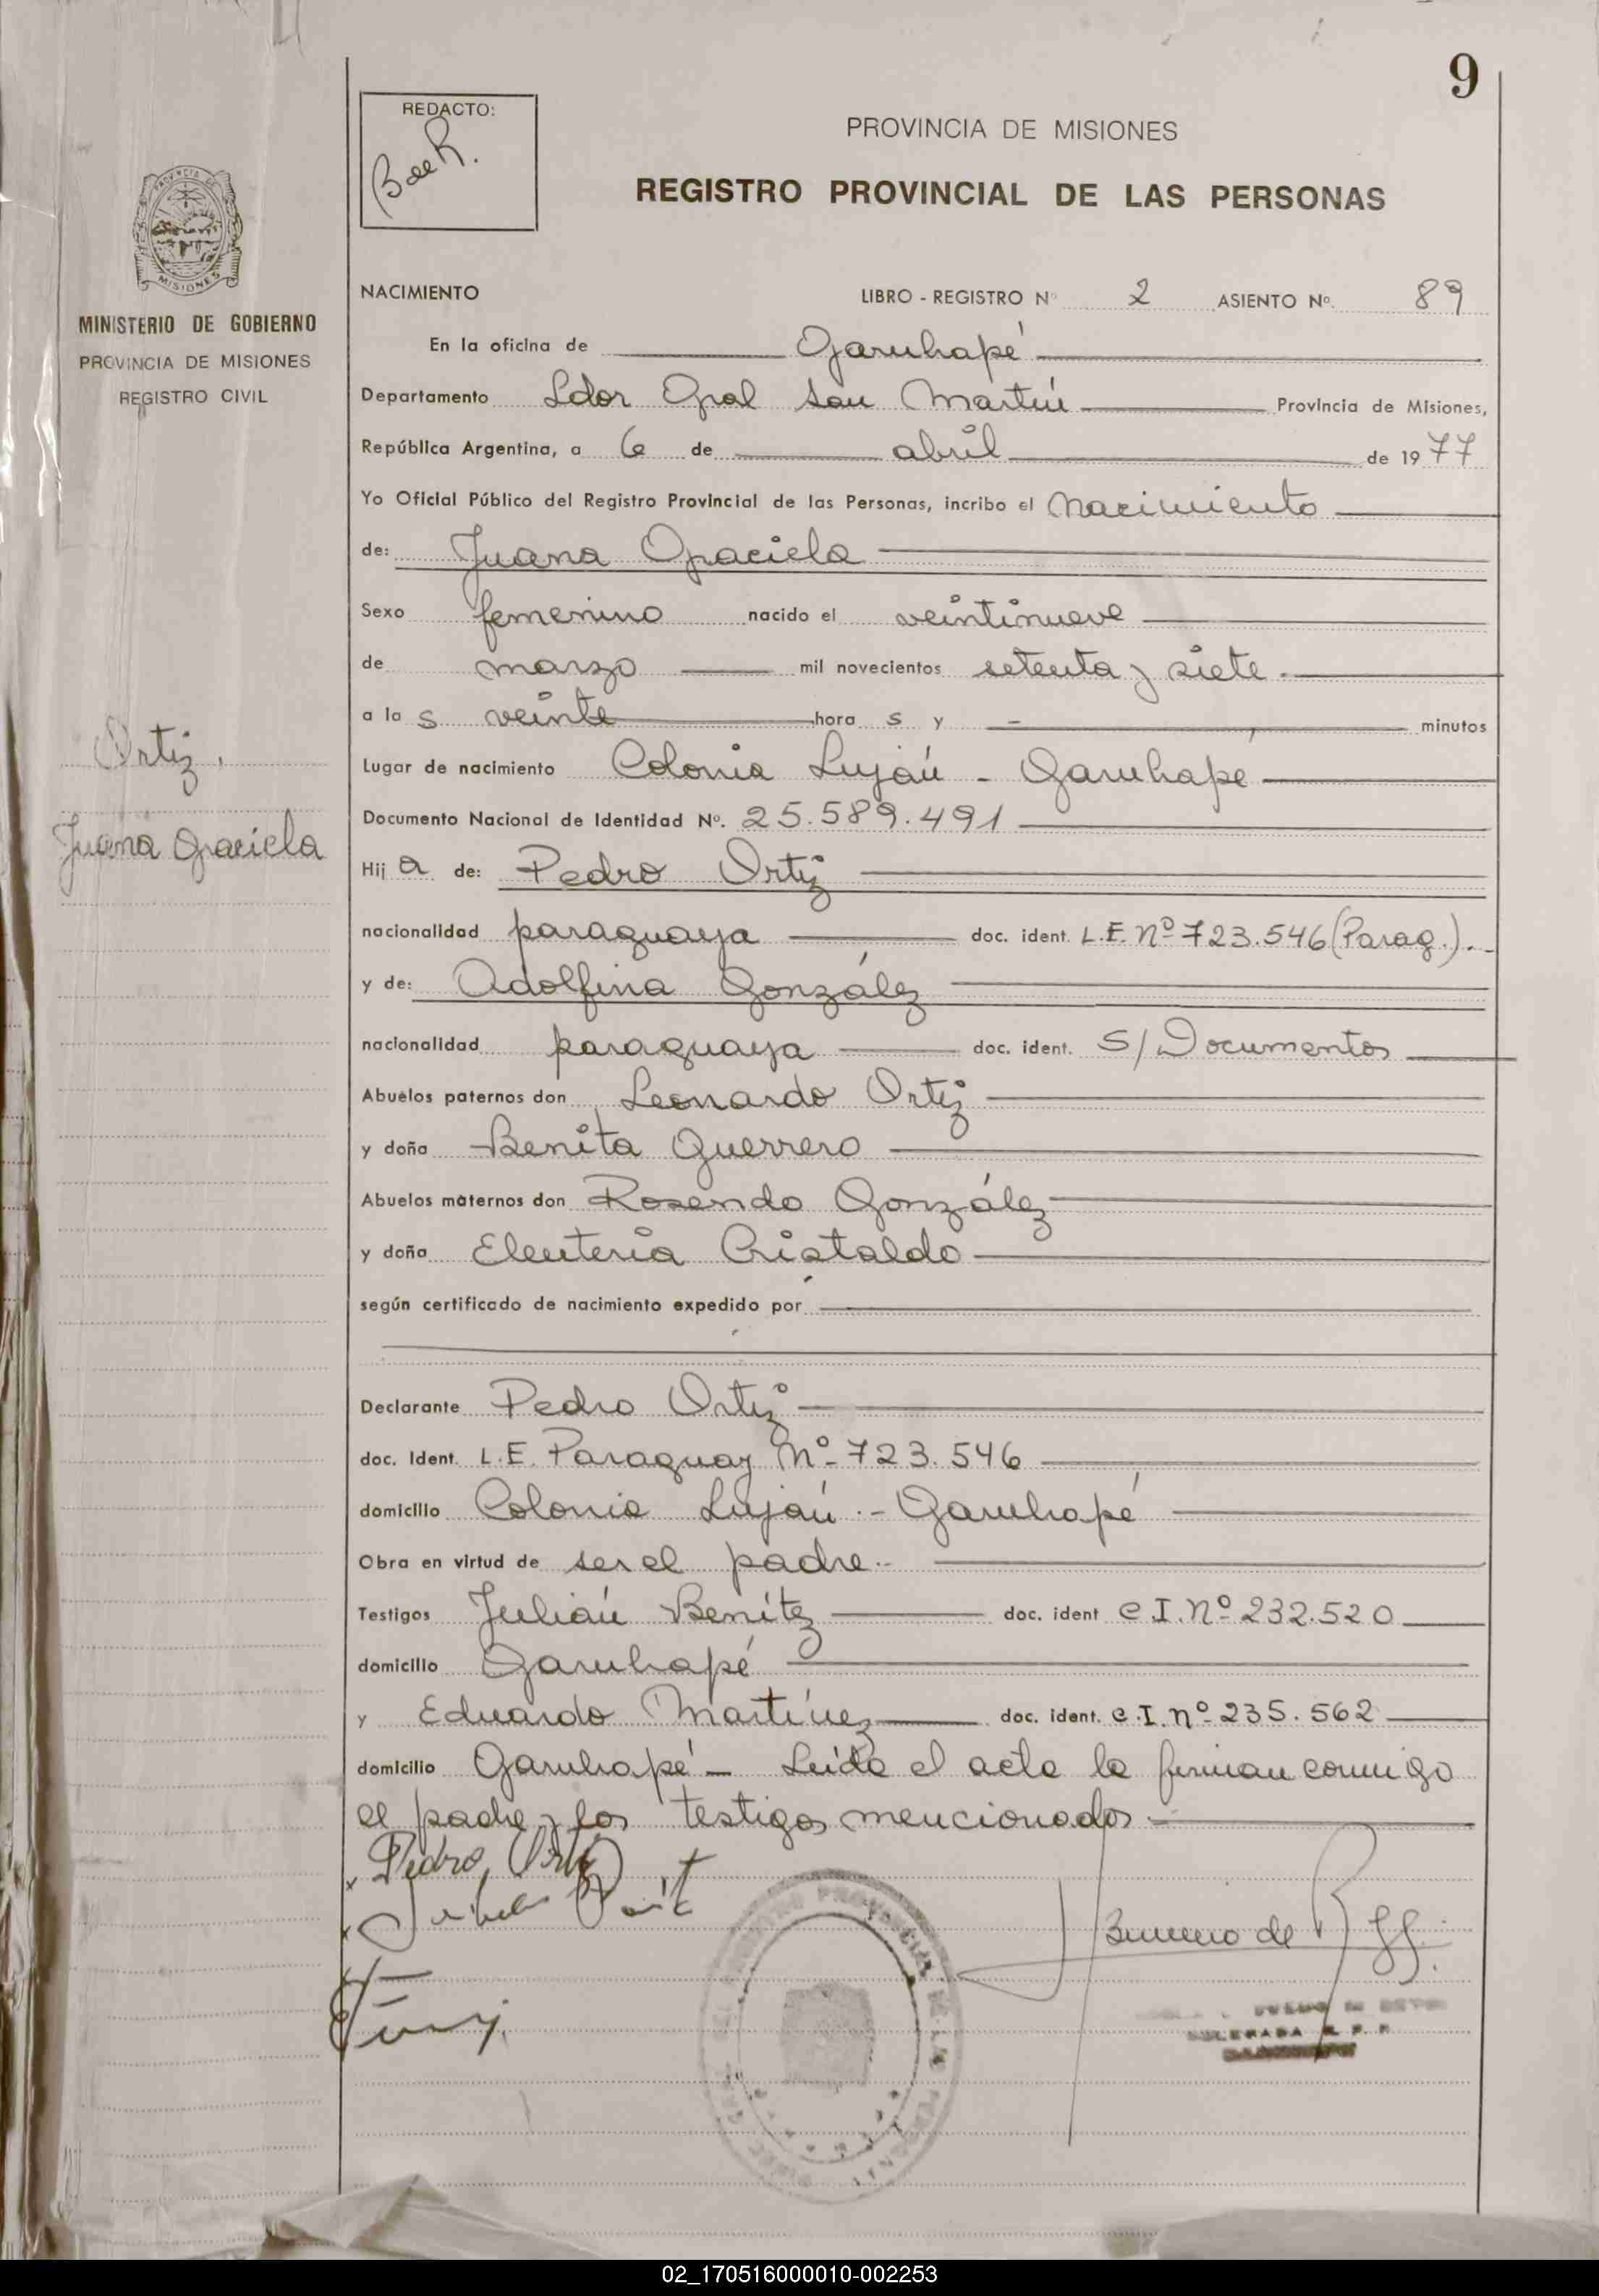 9
REDACTO:
PROVINCIA DE MISIONES
REGISTRO PROVINCIAL DE LAS PERSONAS
MISIONES
MINISTERIO DE GOBIERNO
PROVINCIA DE MISIONES
REGISTRO CIVIL
NACIMIENTO LIBRO - REGISTRO Nº 2 ASIENTO Nº. 89
En la oficina de Garuhapé
Departamento Ldor Gral San Martín Provincia de Misiones,
República Argentina, a 6 de abril de 1977
Yo Oficial Público del Registro Provincial de las Personas, incribo el Nacimiento
de: Juana Graciela
Sexo femenino nacido el veintinueve
de marzo mil novecientos setenta y siete.
a la s veinte hora s y - minutos
Ortiz,
Juana Graciela
Lugar de nacimiento Colonia Luján - Garuhape
Documento Nacional de Identidad Nº. 25.589.491
Hij a de: Pedro Ortiz
nacionalidad paraguaya doc. ident. L.E. Nº 723.546 (Parag.).
y de: Adolfina González
nacionalidad paraguaya doc. ident. S/Documentos
Abuelos paternos don Leonardo Ortiz
y doña Benita Guerrero
Abuelos maternos don Rosendo González
y doña Eleuteria Cristaldo
según certificado de nacimiento expedido por
Declarante Pedro Ortiz
doc. Ident. L.E. Paraguay Nº 723.546
domicilio Colonia Luján - Garuhapé
Obra en virtud de ser el padre.-
Testigos Julián Benítez doc. ident C I. Nº 232.520
domicilio Garuhapé
y Eduardo Martínez doc. ident. C.I. nº 235.562
domicilio Garuhapé - Leída el acta la firman conmigo
el padre y los testigos mencionados.-
Pedro Ortiz
02_170516000010-002253